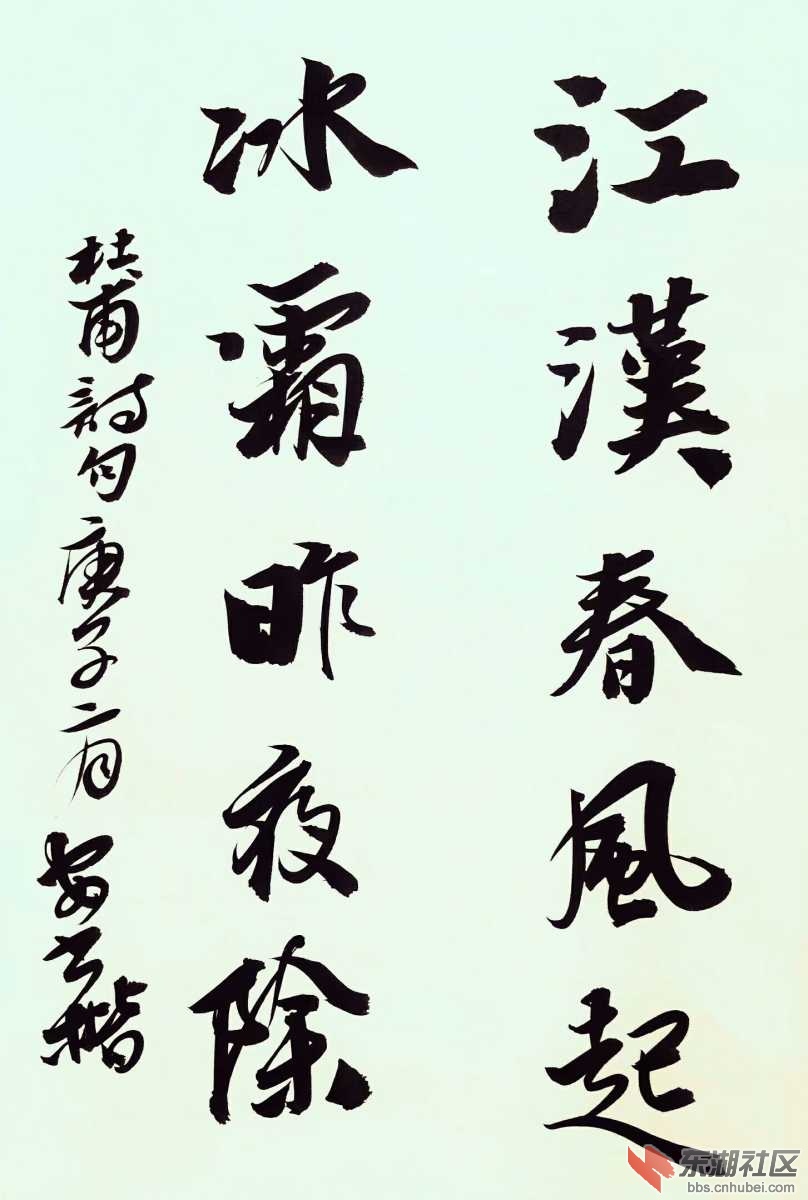 江漢春風起
冰霜昨夜除
杜甫詩句庚子二月
东湖社区
bbs.cnhubei.com